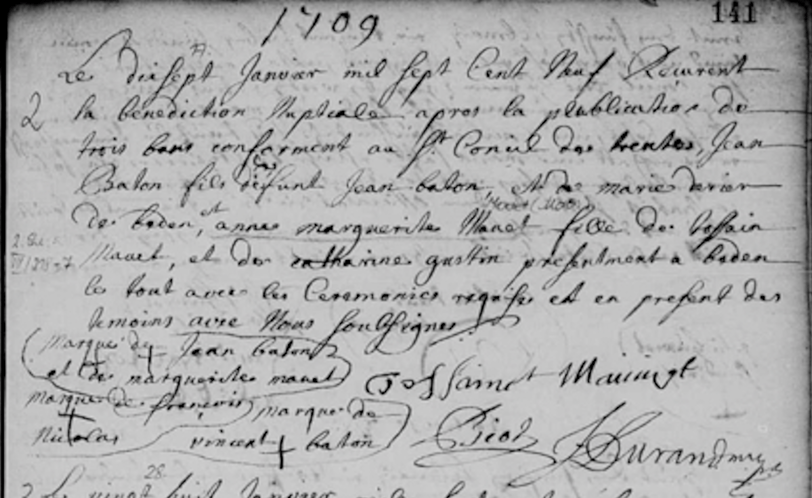 1709
141
Le dixsept Janvier mil sept Cent Neuf Recurent
2 la benediction Nuptiale apres la publication de
trois bans conforment au St Concil des trentes, Jean
Baton fils de defunt Jean baton, et de marie
de boden, et anne marguerites Mauet fille de tossain
Mauet, et de catharine gustin presentment a boden
le tout avec les Ceremonies requises et en present des
temoins avec Nous soubsignes
marque de Jean baton
et de marguerites mauet
marque de francois
Nicolas
marque de
vincent baton
Tossainct
Piot
Durand
28
Le vingt huit Janvier